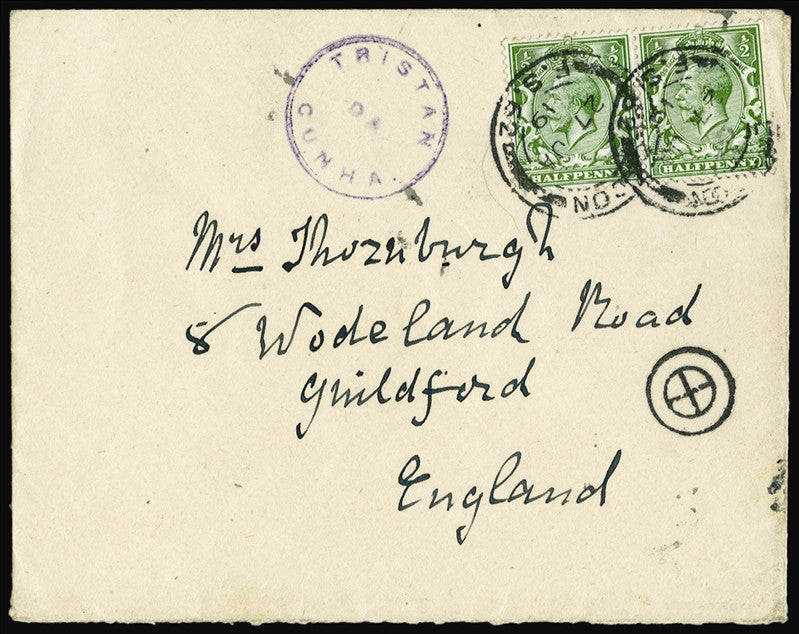 TRISTAN
DA
CUNHA.
½ ½
HALFPENNY
½ ½
HALFPENNY
F.S.
LON
Mrs Thornburgh
8 Wodeland Road
Guildford
England